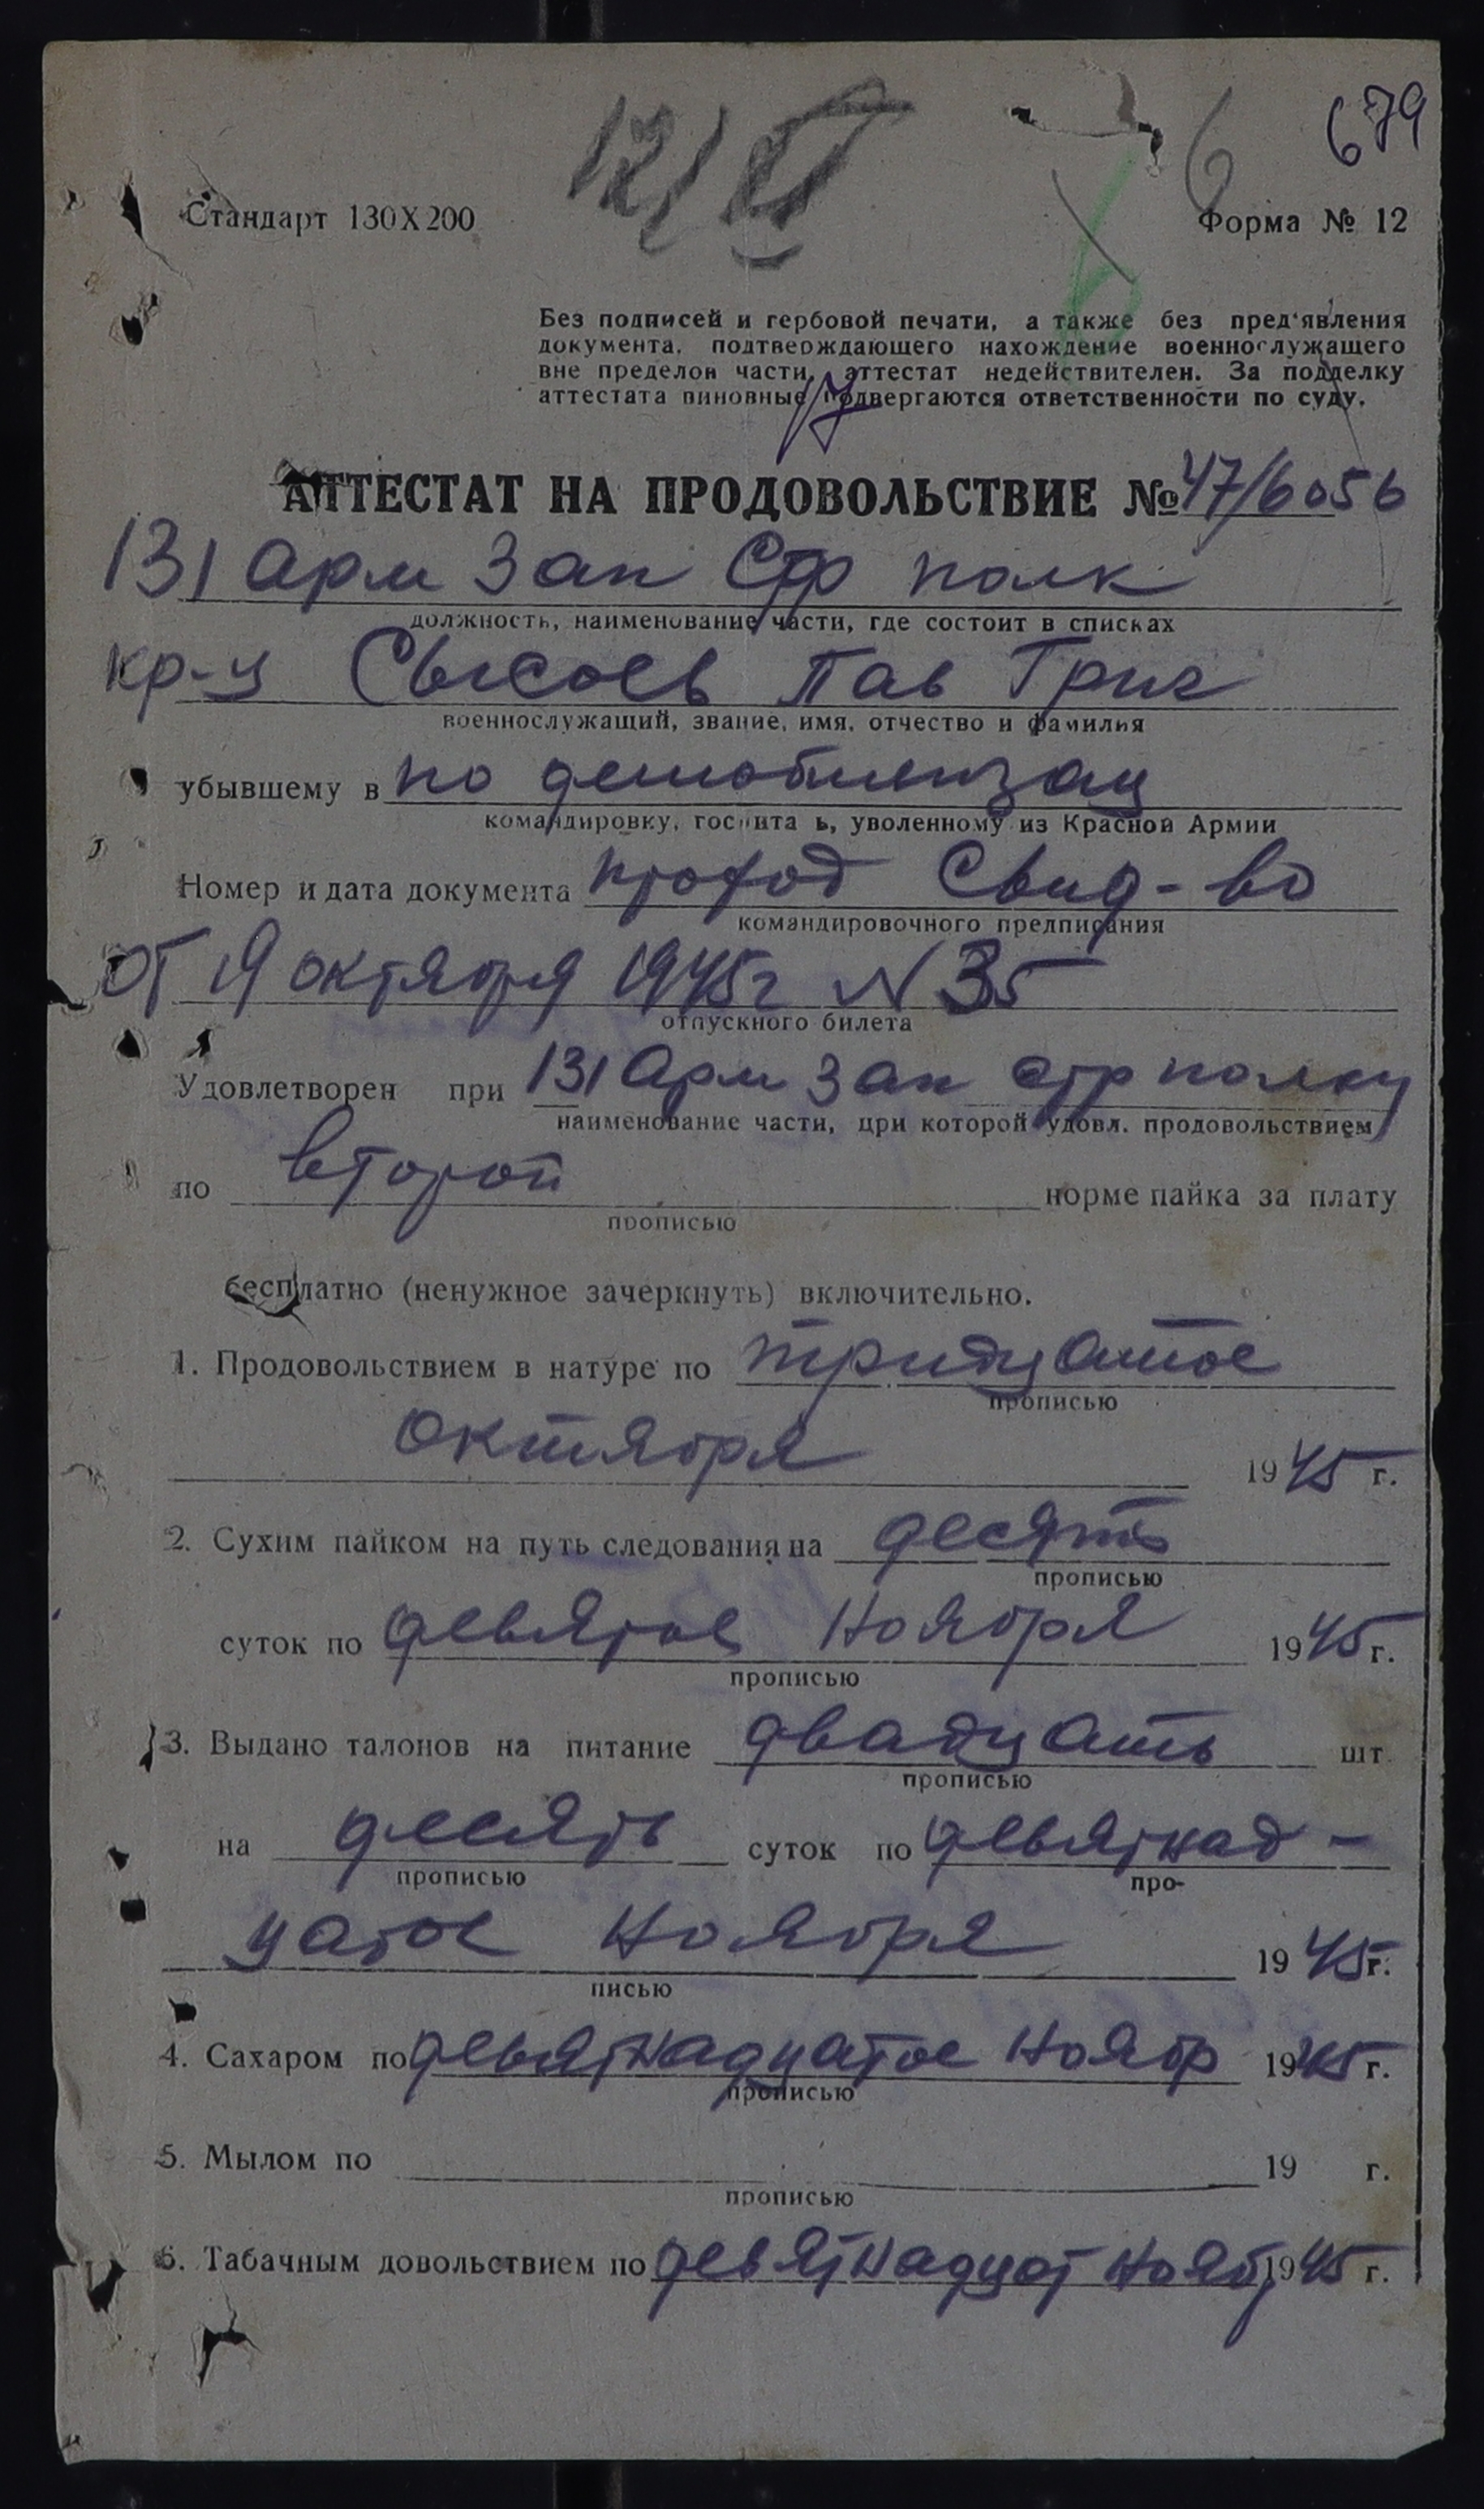 679
12/XI 6
Стандарт 130Х200
Форма № 12
Без подписей и гербовой печати, а также без пред'явления
документа, подтверждающего нахождение военнослужащего
вне пределов части, аттестат недействителен. За подделку
аттестата виновные подвергаются ответственности по суду.
17
АТТЕСТАТ НА ПРОДОВОЛЬСТВИЕ № 47/6056
131 Арм Зап Стр полк
должность, наименование части, где состоит в списках
кр-ц Сысоев Пав Григ
военнослужащий, звание, имя, отчество и фамилия
убывшему в по демобилизац
командировку, госпита ь, уволенному из Красной Армии
Номер и дата документа проход Свид-во
командировочного предписания
от 19 октября 1945г N 35
отпускного билета
Удовлетворен при 131 Арм Зап стр полку
наименование части, при которой удовл. продовольствием
по второй норме пайка за плату
прописью
бесплатно (ненужное зачеркнуть) включительно.
1. Продовольствием в натуре по тридцатое
прописью
октября 1945 г.
2. Сухим пайком на путь следования на десять
прописью
суток по девятое Ноября 1945 г.
прописью
3. Выдано талонов на питание двадцать шт
прописью
на десять суток по девятнад-
прописью про-
цатое Ноября 1945г.
писью
4. Сахаром по девятнадцатое Ноябр 1945 г.
прописью
5. Мылом по 19 г.
прописью
6. Табачным довольствием по девятнадцат Нояб 1945 г.